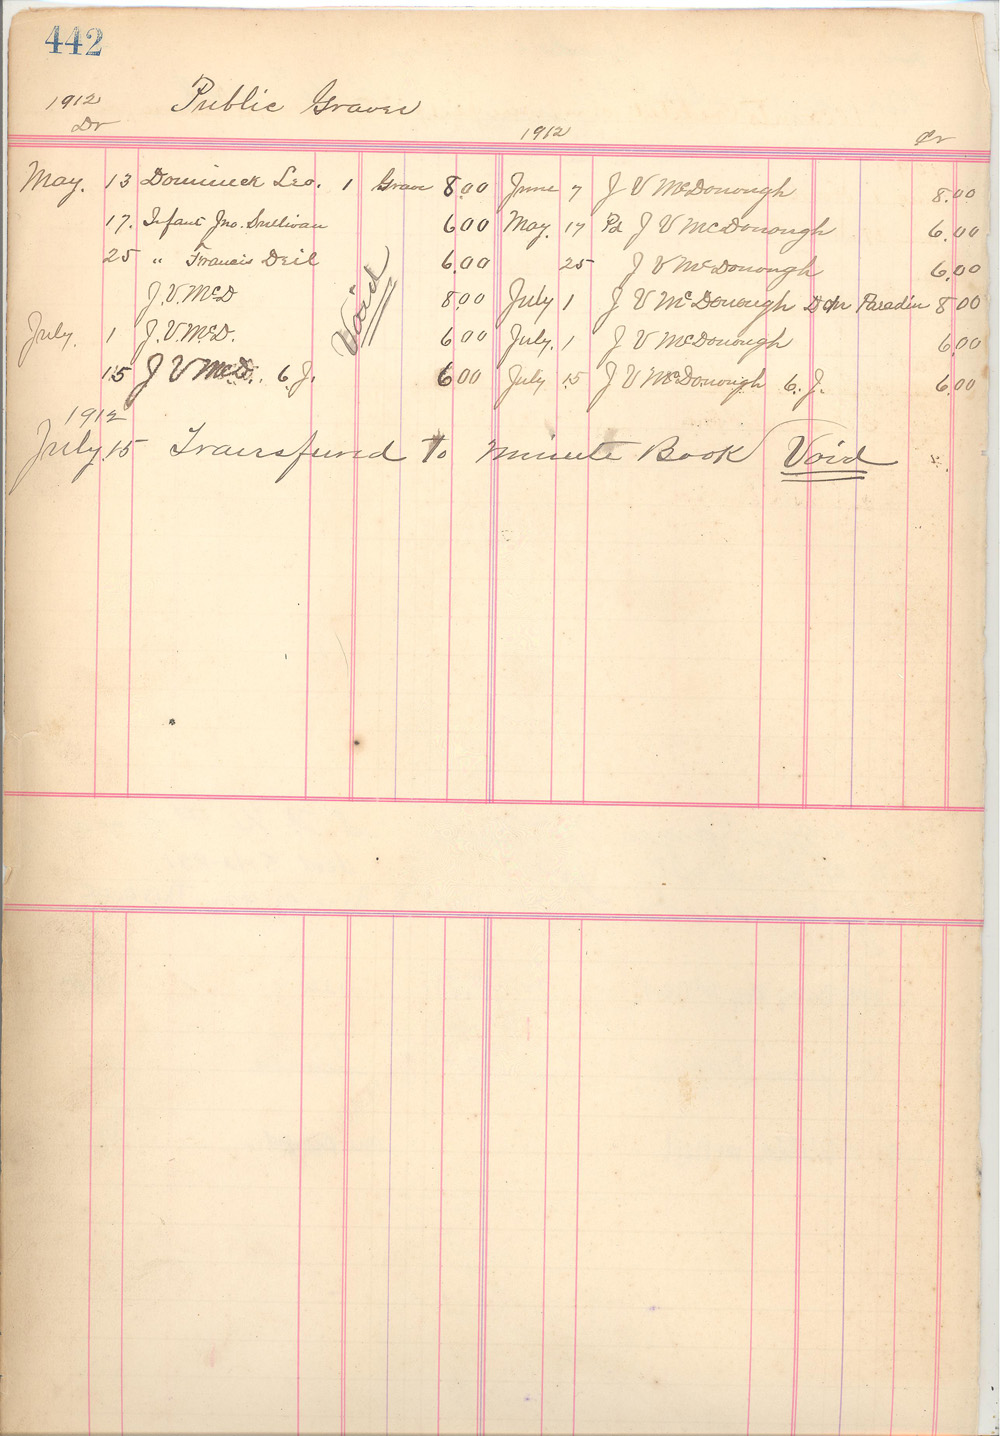 442
1912 Public Graves
Dr 1912 Cr
May. 13 Dominick Leo. 1 Grave 8.00 June 7 J V McDonough 8.00
17. Infant Jno. Sullivan 600 May. 17 Pd J V McDonough 6.00
25 " Francis Deil 6.00 25 J V McDonough 6.00
J.V.McD 8.00 July 1 J V McDonough Paradin 8 00
July. 1 J.V.McD. 600 July. 1 J V McDonough 6.00
Void
15 J V McD. 6. J. 600 July 15 J V McDonough 6. J. 6.00
1912
July 15 Transfured To Minute Book Void